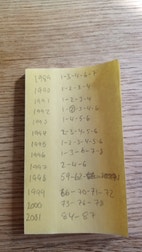 1989 1-3-4-6-7
1990 1-2-3-4
1991 1-2-3-4
1992 1-3-4-5
1993 1-4-5-6
1994 2-3-4-5-6
1995 1-3-4-5-6
1996 1-3-6-7-8
1997 2-4-6
1998 59-62-
1999 66-70-71-72
2000 73-76-78
2001 84-87